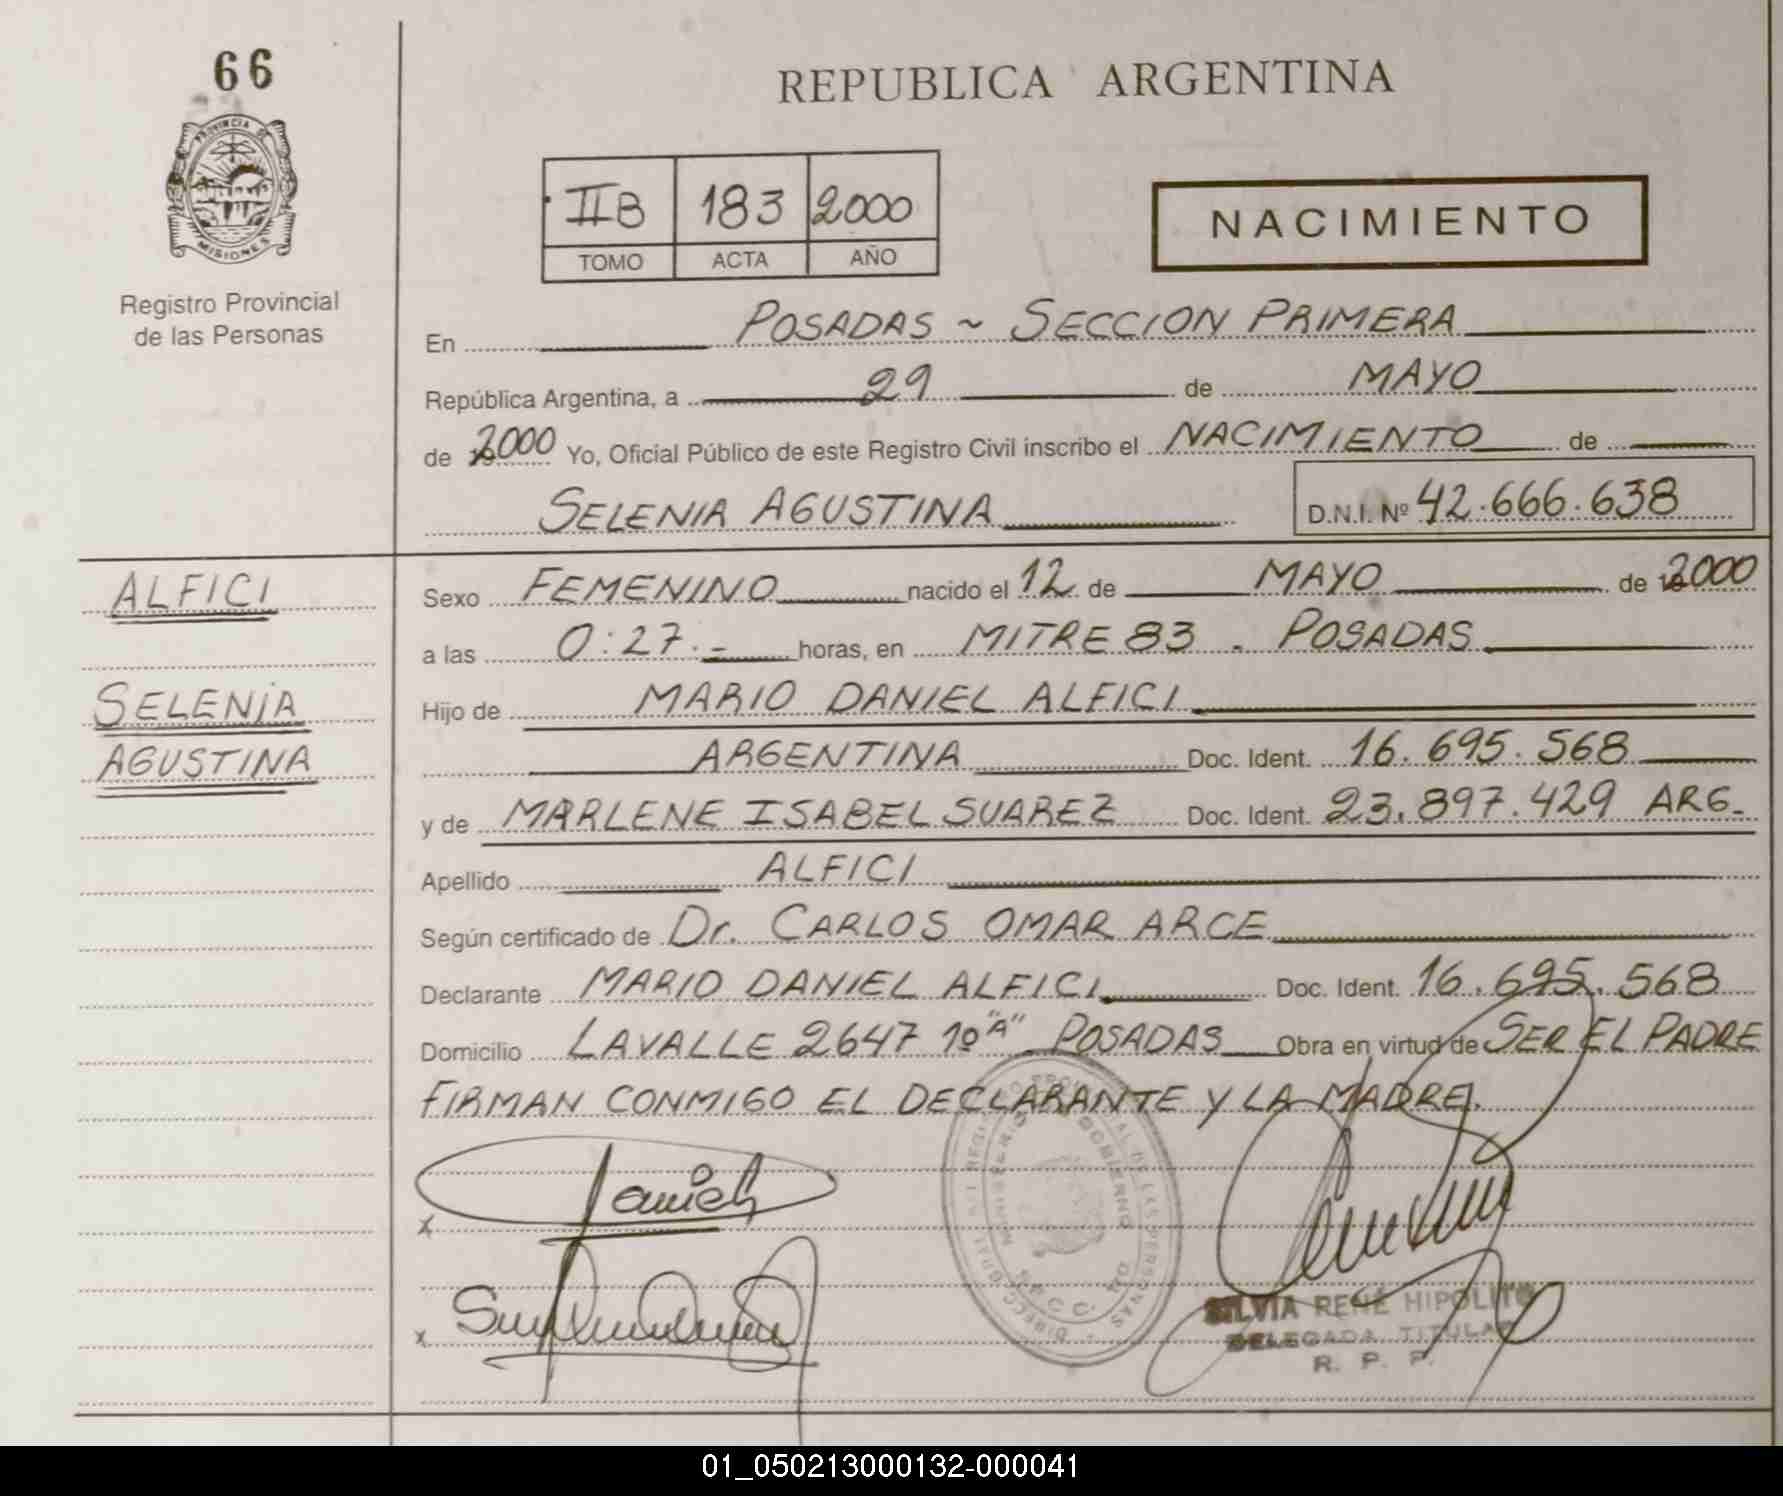 66
REPUBLICA ARGENTINA
PROVINCIA DE
MISIONES
Registro Provincial
de las Personas
IIB 183 2000
TOMO ACTA AÑO
NACIMIENTO
En POSADAS ~ SECCION PRIMERA
República Argentina, a 29 de MAYO
de 2000 Yo, Oficial Público de este Registro Civil inscribo el NACIMIENTO de
SELENIA AGUSTINA D.N.I. Nº 42.666.638
ALFICI
SELENIA
AGUSTINA
Sexo FEMENINO nacido el 12 de MAYO de 2000
a las 0:27.- horas, en MITRE 83 - POSADAS
Hijo de MARIO DANIEL ALFICI
ARGENTINA Doc. Ident. 16.695.568
y de MARLENE ISABEL SUAREZ Doc. Ident. 23.897.429 ARG.
Apellido ALFICI
Según certificado de Dr. CARLOS OMAR ARCE
Declarante MARIO DANIEL ALFICI Doc. Ident. 16.695.568
Domicilio LAVALLE 2647 1º "A" POSADAS Obra en virtud de SER EL PADRE
FIRMAN CONMIGO EL DECLARANTE Y LA MADRE.
x
x
MINISTERIO GOBIERNO
SILVIA RENÉ HIPOLITO
DELEGADA TITULAR
R. P. P.
01_050213000132-000041